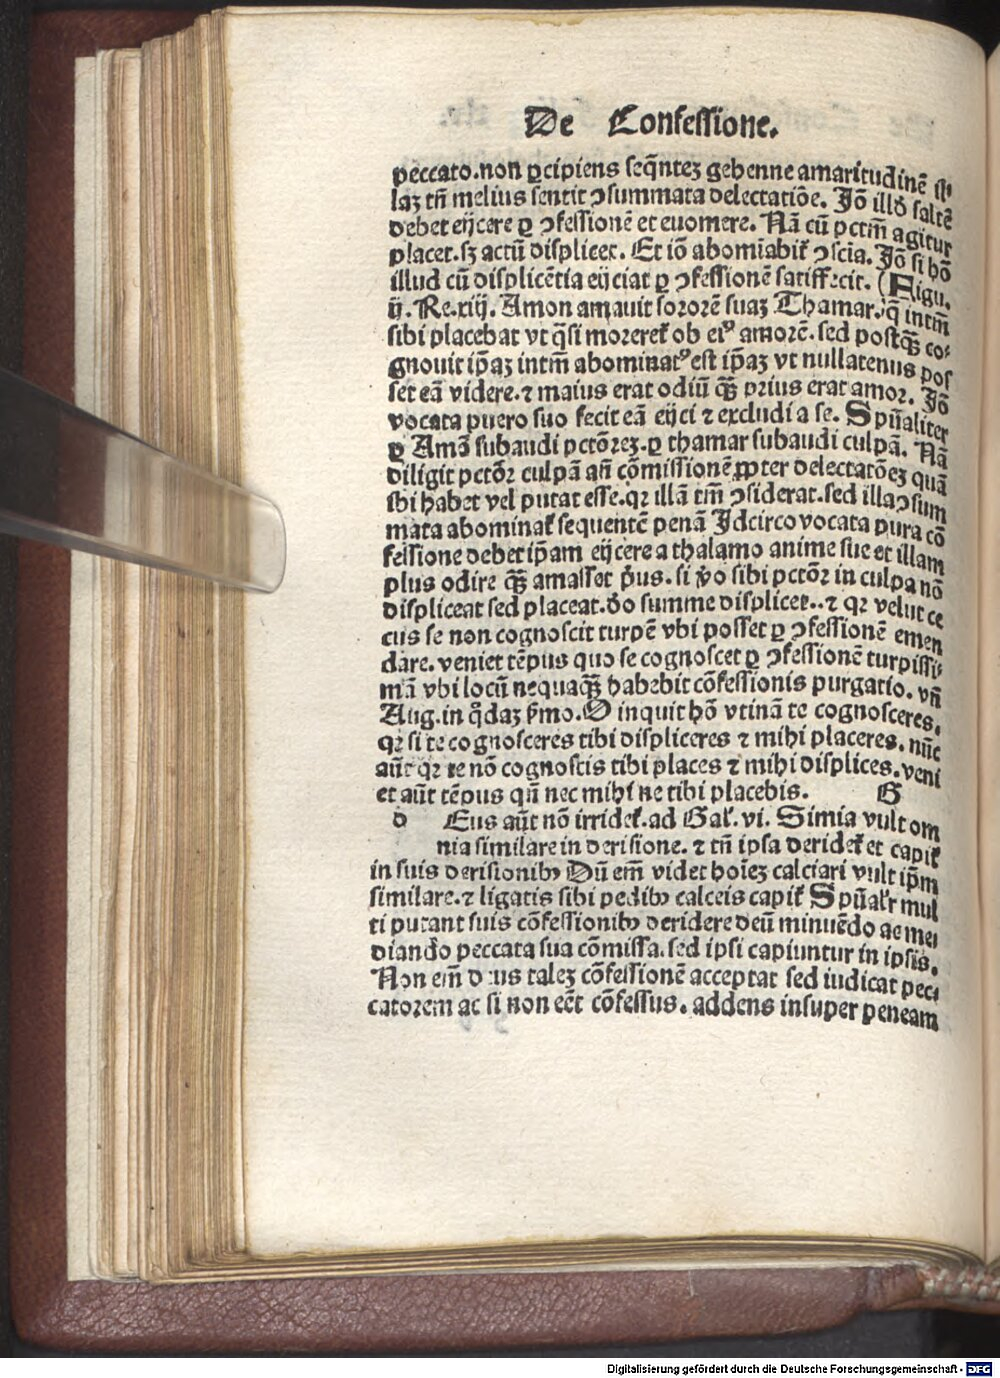 De Confessione.
peccato.non ꝑcipiens seq̄ntez gehenne amaritudinē il
laz tn̄ melius sentit ↄsummata delectatiōe. Iō illd̓ saltē
debet eijcere ꝑ ↄfessionē et euomere. Nā cū pctm̄ agitur
placet.sꝫ actū displicet. Et iō abomiabit̉ ↄscia. Iō si hō
illud cū displicētia eijciat ꝑ ↄfessionē satiffecit. (Figu.
ij. Re.xiij. Amon amauit sororē suaꝫ Thamar.q̄ intm̄
sibi placebat vt q̄si moreret̉ ob eiꝰ amorē.sed postqꝫ̄ co⸗
gnouit ip̄aꝫ intm̄ abominatꝰ est ip̄aꝫ vt nullatenus pos
set eā videre.⁊ maius erat odiū qꝫ̄ prius erat amor. Iō
vocata puero suo fecit eā eijci ⁊ excludi a se. Spūaliter
ꝑ Amō subaudi pctōrez.ꝑ thamar subaudi culpā. Nā
diligit pctōr culpā an̄ cōmissionē ꝓpter delectatōeꝫ quā
ibi habet vel putat esse.qꝛ illā tm̄ ↄsiderat.sed illa ↄsum
mata abominat̉ sequentē penā Idcirco vocata pura cō
fessione debet ip̄am eijcere a thalamo anime sue et illam
plus odire qꝫ̄ amasset p̄us. si v̓o sibi pctōr in culpa nō
displiceat sed placeat.d̓o summe displicet..⁊ qꝛ velut ce
cus se non cognoscit turpē vbi posset ꝑ ↄfessionē emen
dare. veniet tēpus quo se cognoscet ꝑ ↄfessionē turpissi⸗
mā vbi locū nequaqꝫ̄ habebit cōfessionis purgatio. vn̄
Aug.in q̄daꝫ s̓mo.O inquit hō vtinā te cognosceres.
qꝛ si te cognosceres tibi displiceres ⁊ mihi placeres. nūc
aūt qꝛ te nō cognoscis tibi places ⁊ mihi displices.veni
et aūt tēpus qn̄ nec mihi ne tibi placebis. G
d Eus aūt nō irridet̉.ad Gal̉. vi. Simia vult om
nia similare in derisione. ⁊ tn̄ ipsa deridet̉ et capit̉
in suis derisionibꝰ Dū em̄ videt hoīeꝫ calciari vult ip̄m
similare.⁊ ligatis sibi pedibꝰ calceis capit̉ Spūal̉r mul
ti putant suis cōfessionibꝰ deridere deū minuēdo ac mē
diando peccata sua cōmissa.sed ipsi capiuntur in ipsis.
Non em̄ deus taleꝫ cōfessionē acceptat sed iudicat pec⸗
catorem ac si non eēt cōfessus. addens insuper peneam
Digitalisierung gefördert durch die Deutsche Forschungsgemeinschaft - DFG